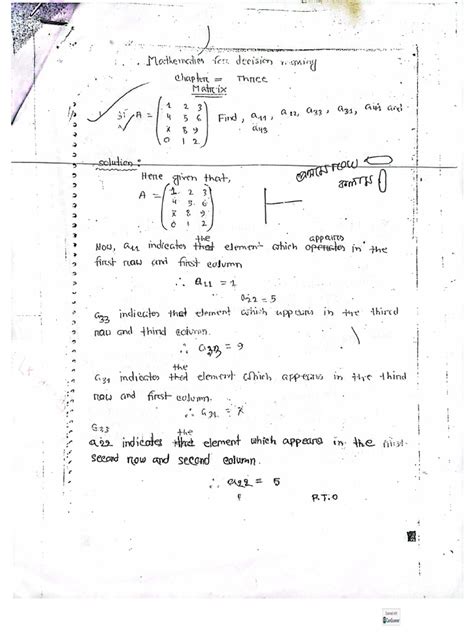 Mathematics for decision making
Chapter = Three
Matrix
A = (1 2 3
4 5 6
x 8 9
0 1 2) Find, a11, a12, a33, a31, a41 and
a43
solution:
Here given that,
A = (1 2 3
4 5 6
x 8 9
0 1 2)
the appears
Now, a11 indicates that element which operates in the
first row and first column
∴ a11 = 1
a22 = 5
a33 indicates that element which appears in the third
row and third column.
∴ a33 = 9
the
a31 indicates that element which appears in the third
row and first column.
∴ a31 = x
a33
the
a22 indicates that element which appears in the first
second row and second column.
∴ a22 = 5
P.T.O
CamScanner